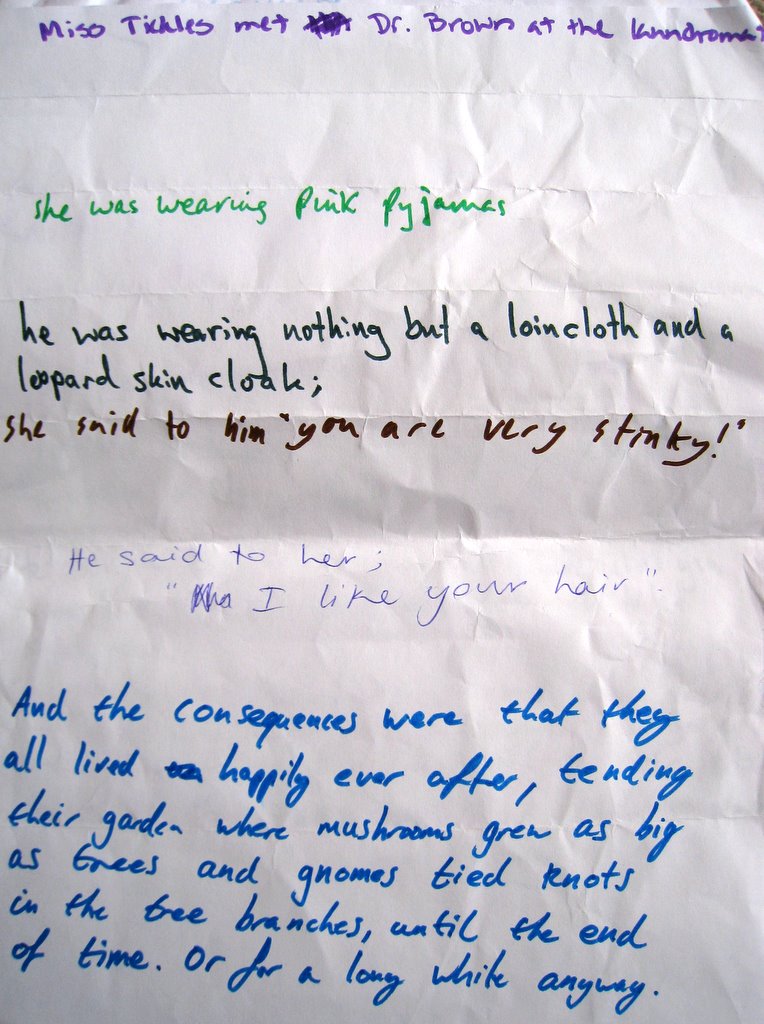 Miso Tickles met Dr. Brown at the laundromat
she was wearing Pink Pyjamas
he was wearing nothing but a loincloth and a
leopard skin cloak;
she said to him "you are very stinky!"
He said to her;
" I like your hair".
And the consequences were that they
all lived happily ever after, tending
their garden where mushrooms grew as big
as trees and gnomes tied knots
in the tree branches, until the end
of time. Or for a long while anyway.